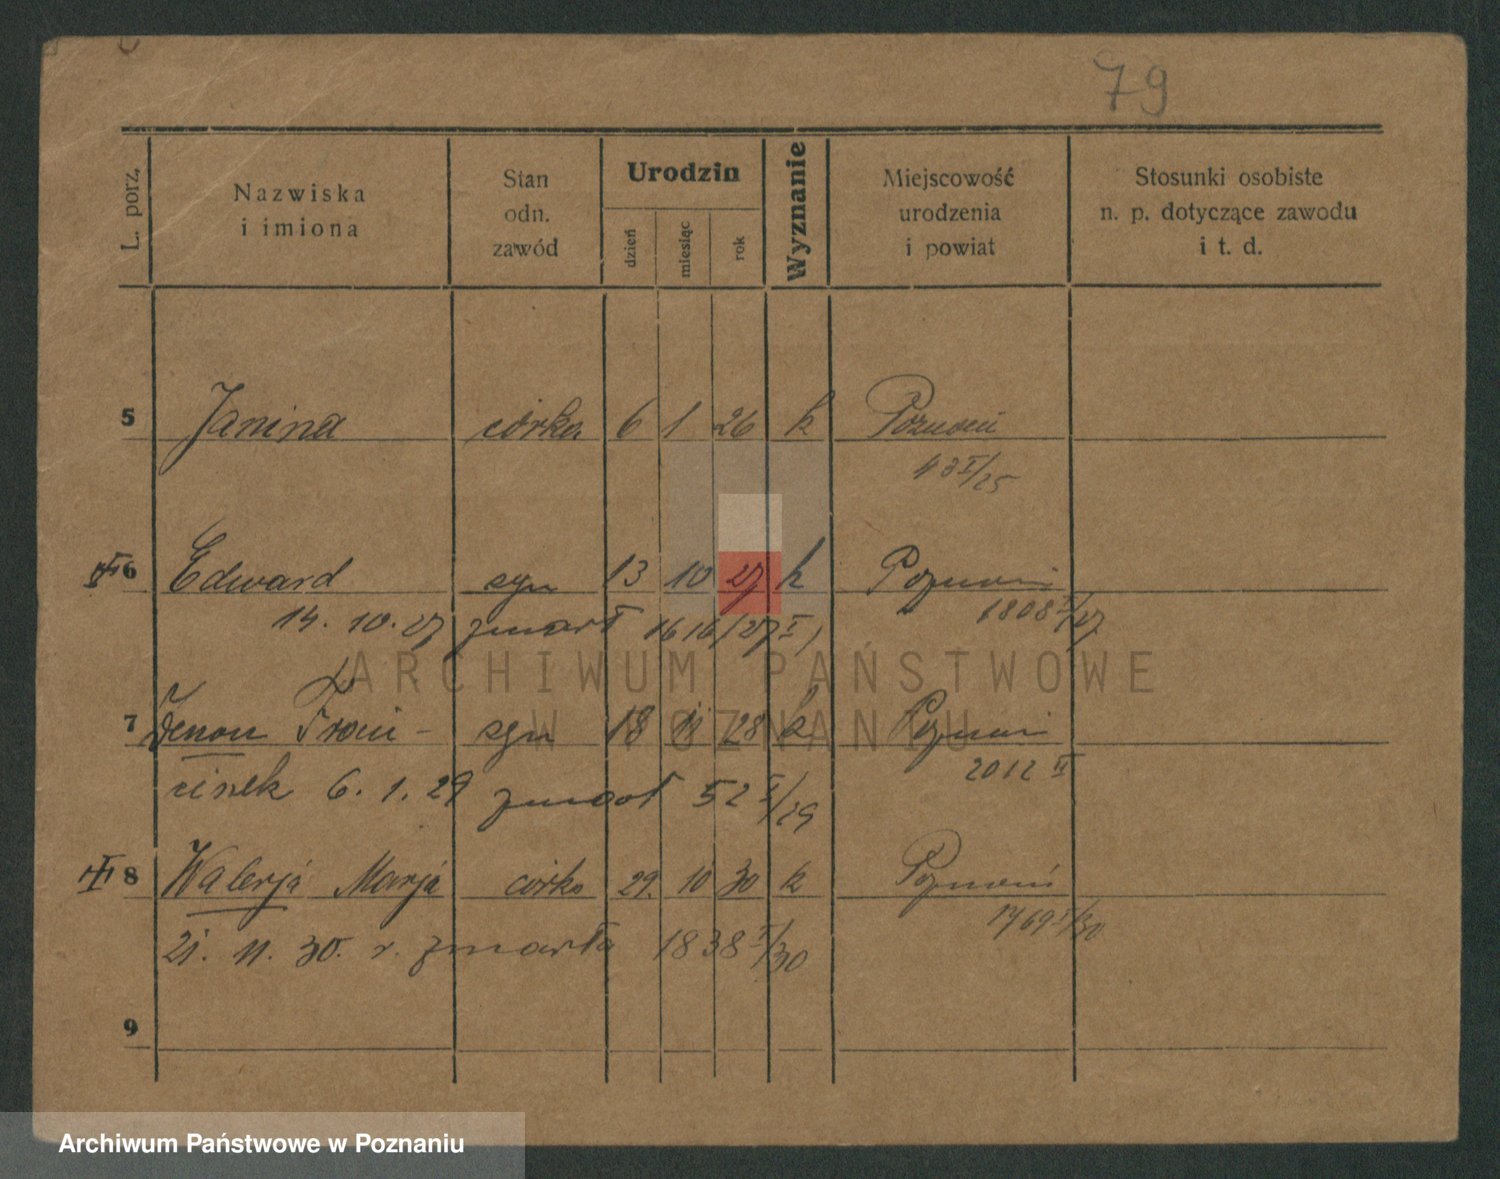 79
L. porz.
Nazwiska
i imiona
Stan
odn.
zawód
Urodzin
dzień
miesiąc
rok
Wyznanie
Miejscowość
urodzenia
i powiat
Stosunki osobiste
n. p. dotyczące zawodu
i t. d.
5 Janina córka 6 1 26 k Poznań
43 I/25
6 Edward syn 13 10 27 k Poznań
1808 I/27
14. 10. 27 zmarł 1616/27 I
7 Zenon Franci- syn 18 11 28 k Poznań
2012 II
ciszek 6. 1. 29 zmarł 52 I/29
8 Walerja Marja córka 29. 10 30 k Poznań
1769 I/30
21. 11. 30. r. zmarła 1838 I/30
9
ARCHIWUM PAŃSTWOWE
W POZNANIU
Archiwum Państwowe w Poznaniu